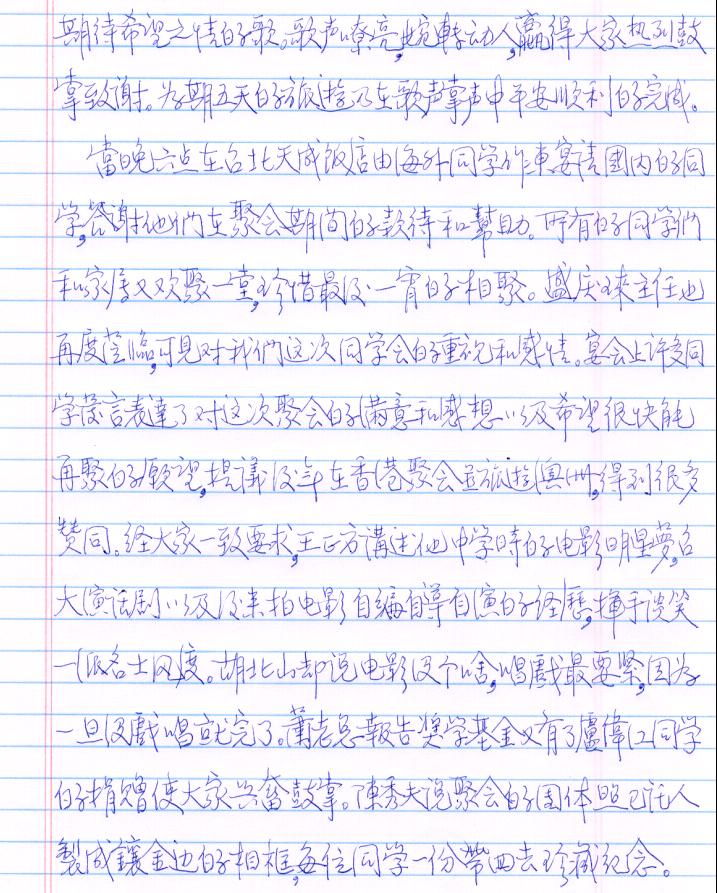 期待希望之情的歌。歌声嘹亮,婉轉动人,贏得大家热列鼓
掌致谢。为期五天的旅遊乃在歌声掌声中平安順利的完成。
當晚六点在台北天成飯店由海外同学作東宴請國内的同
学,答谢他們在聚会期間的款待和幫助。所有的同学們
和家属又欢聚一堂,珍惜最后一宵的相聚。盛庆琜主任也
再度莅臨,可見对我們这次同学会的重視和感情。宴会上许多同
学發言表達了对这次聚会的满意和感想以及希望很快能
再聚的願望,提議後年在香港聚会並旅遊澳州,得到很多
赞同。经大家一致要求,王正方講述他中学時的电影明星夢,台
大演话剧以及後来拍电影自编自導自演的经歷,揮手谈笑
一派名士风度。胡北山却说电影没个啥,唱戲最要緊,因为
一旦没戲唱就完了。蕭老总報告奬学基金又有了盧偉江同学
的捐贈使大家兴奮鼓掌。陳秀夫说聚会的团体照已讬人
製成鑲金边的相框,每位同学一份帶回去珍藏纪念。